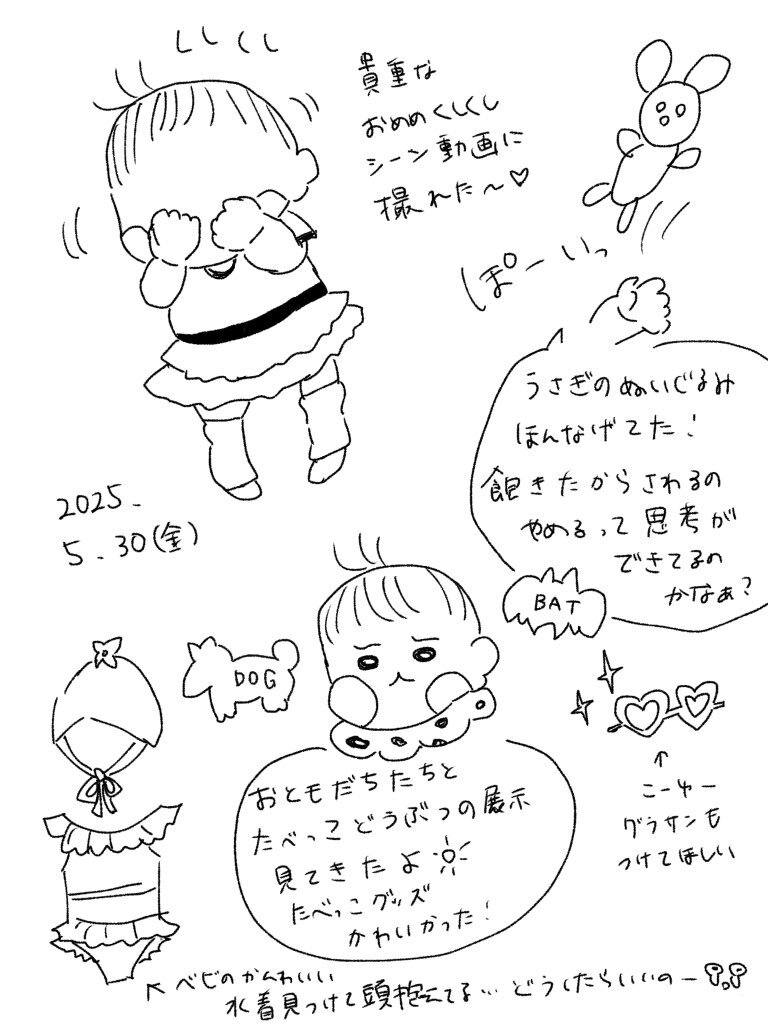 くしくし
貴重な
おめめくしくし
シーン動画に
撮れた〜♡
ぽーいっ
うさぎのぬいぐるみ
ほんなげてた!
飽きたからさわるの
やめるって思考が
できてるの
かなぁ?
2025.
5.30(金)
BAT
DOG
おともだちたちと
たべっこどうぶつの展示
見てきたよ
たべっこグッズ
かわいかった!
↑
こーゆー
グラサンも
つけてほしい
←ベビのかんわいい
水着見つけて頭抱えてる…どうしたらいいのー